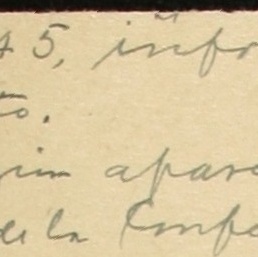 45, info
to.
gun apara
de la Confe